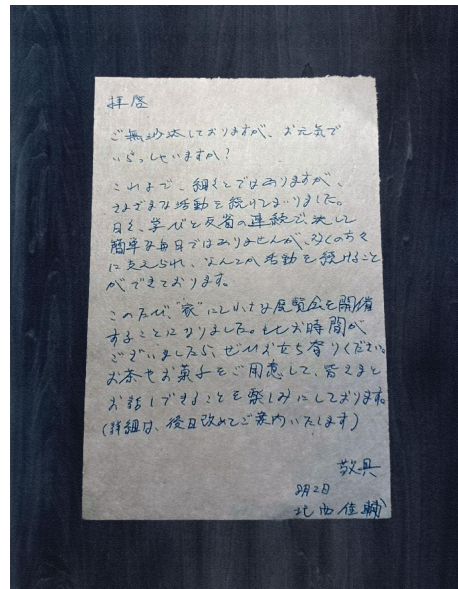 拝啓
ご無沙汰しておりますが、お元気で
いらっしゃいますか?
これまで、細々とではありますが、
さまざまな活動を続けてまいりました。
日々、学びと反省の連続で、決して
簡単な毎日ではありませんが、多くの方々
に支えられ、なんとか活動を続けること
ができております。
このたび、"家"にて小さな展覧会を開催
することになりました。もしお時間が
ございましたら、ぜひお立ち寄りください。
お茶やお菓子をご用意して、皆さまと
お話しできることを楽しみにしております。
(詳細は、後日改めてご案内いたします)
敬具
8月2日
北西佳輔